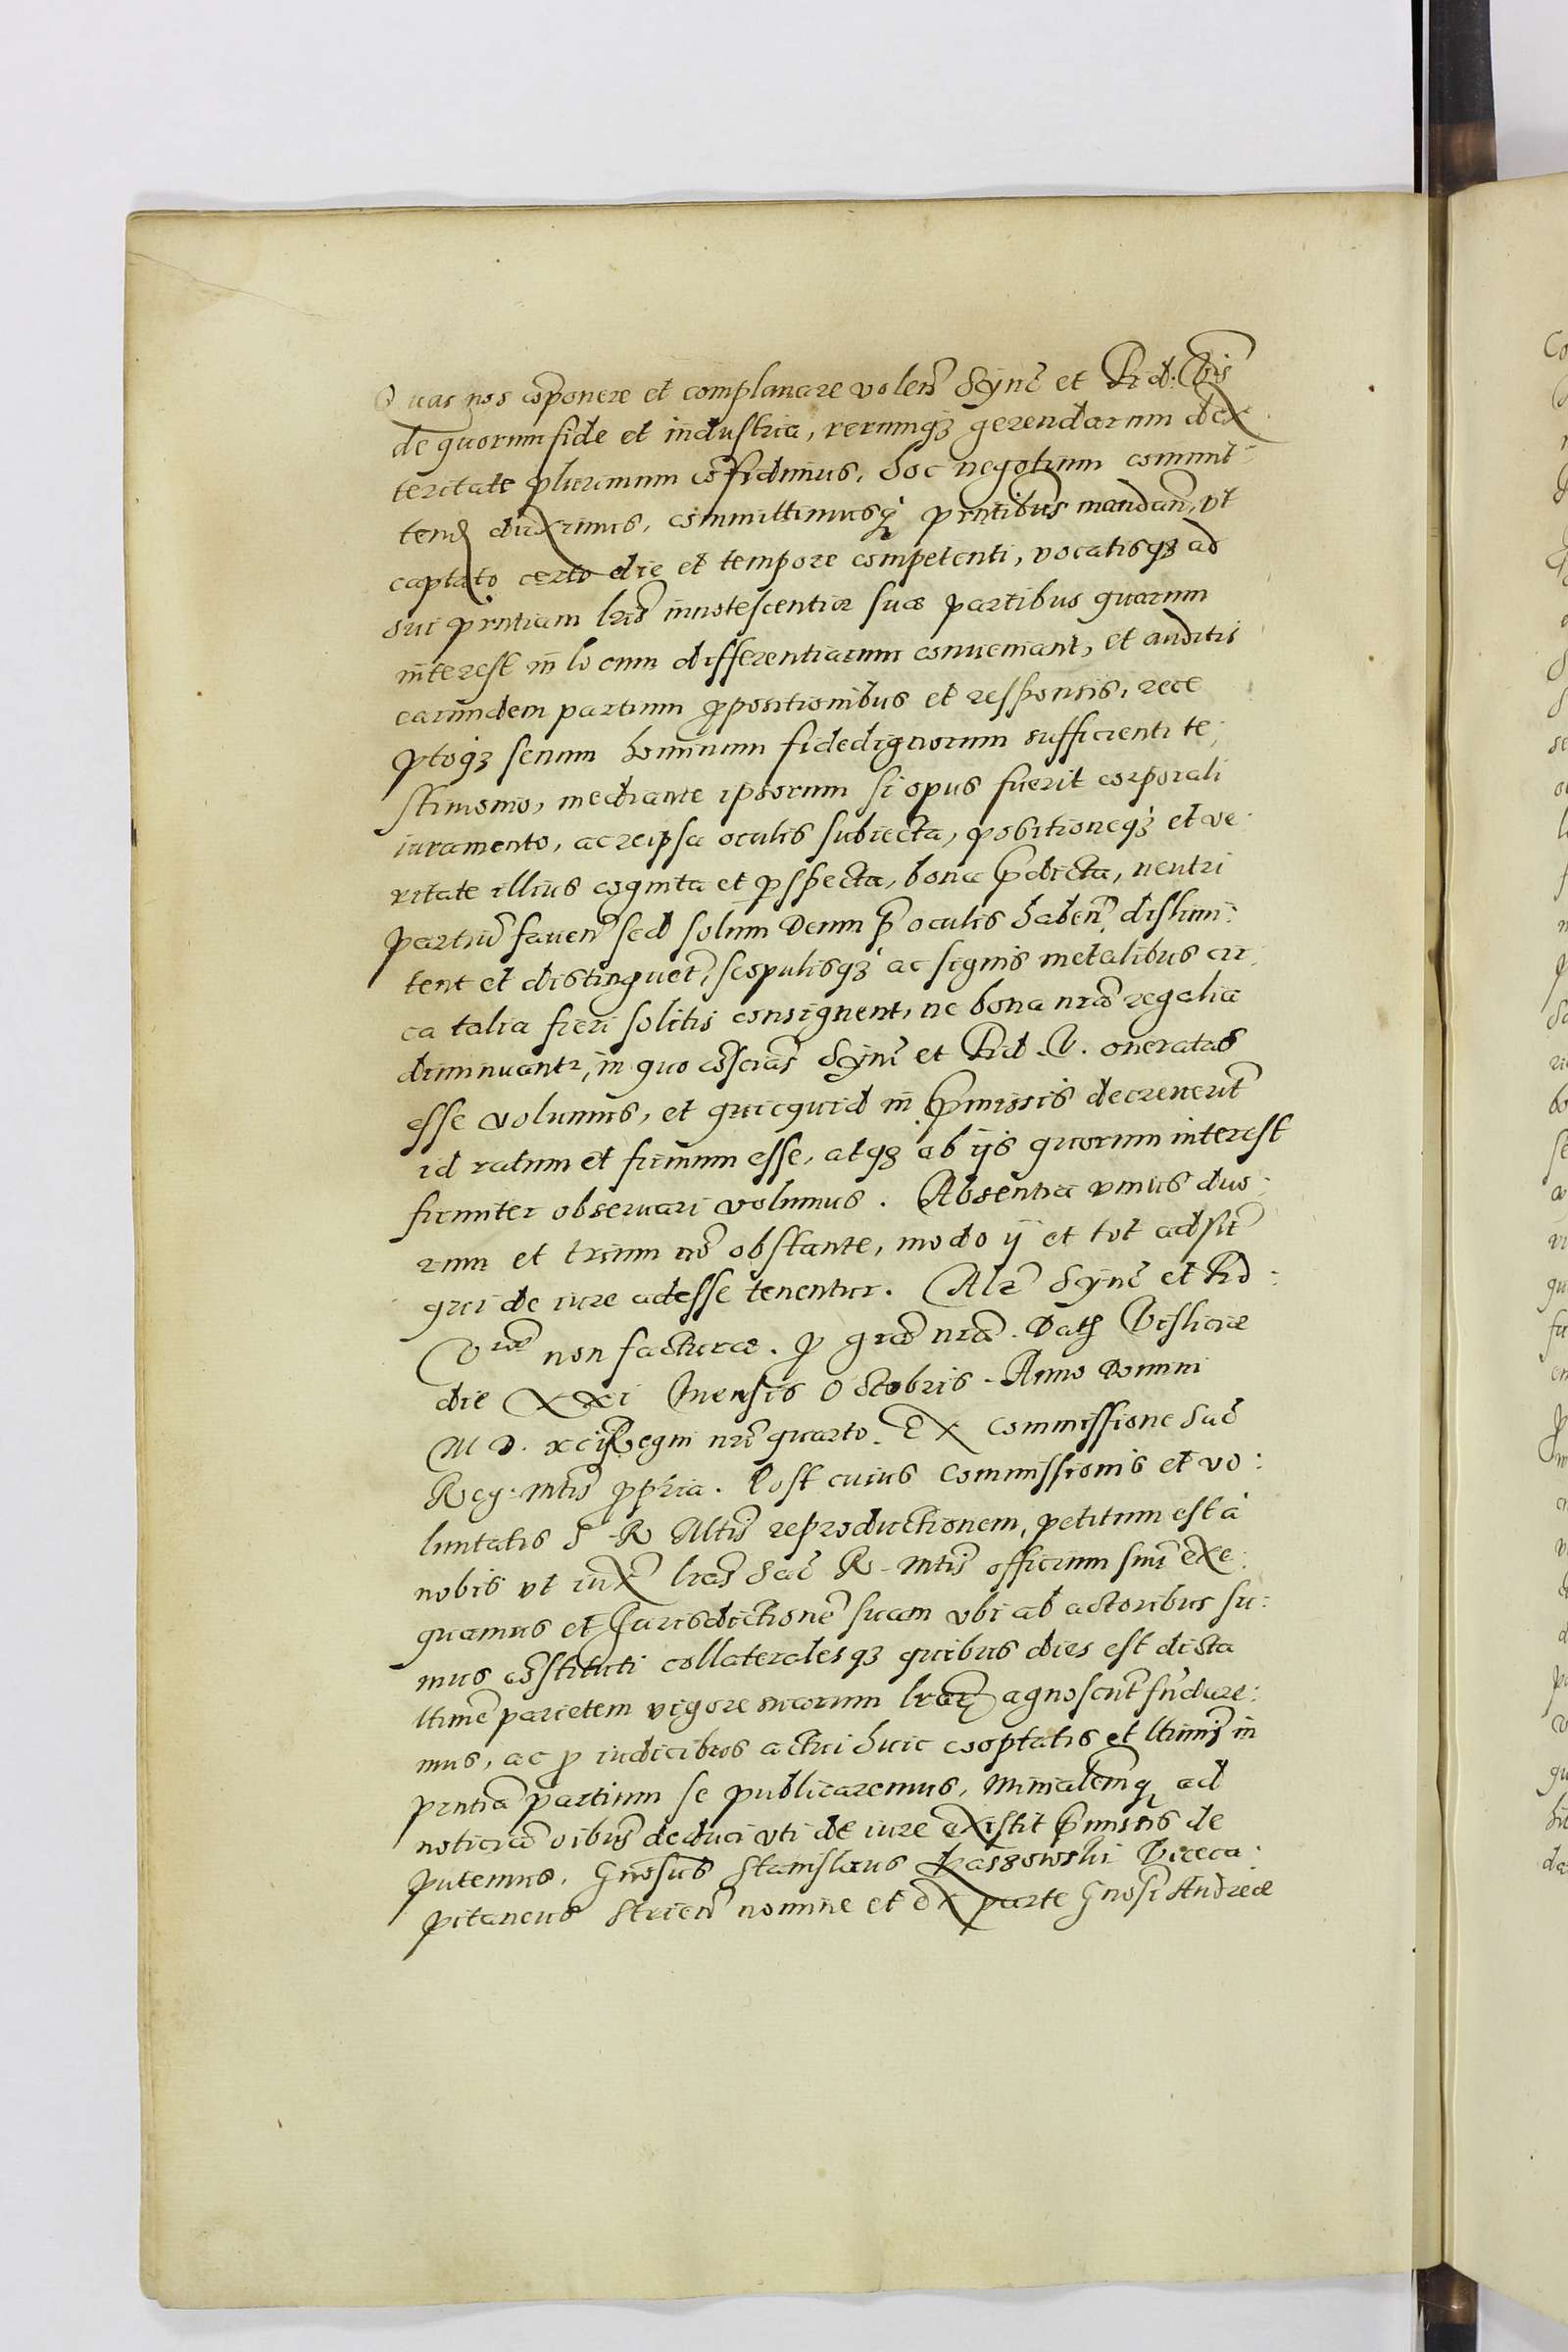 Quas nos cõponere et complanare volen̄ Syñ et Fid: V̄ris
de quorum fide et industria, rerumq₃ gerendarum dex
teritate plurimum cõfidimus, hoc negotium commit
tend duximus, committimusq₃ prntibus mandan̄, vt
captato certo die et tempore competenti, vocatisq₃ ad
sui prntiam lris innotescentiæ suæ partibus quarum
interest in locum differentiarum conueniant, et auditis
earundem partium ꝓpositionibus et responsis, rece
ptoq₃ senum hominum fidedignorum sufficienti te:
stimonio, mediante ipsorum si opus fuerit corporali
iuramento, ac re ipsa oculis subiecta, positioneq₃ et ve:
ritate illius cognita et ꝑspecta, bona p̄dicta, neutri
partiũ faueñ sed solum Deum p̄ oculis habeñ, dislimi:
tent et distinguet, scopulisq₃ ac signis metalibus cir:
ca talia fieri solitis consignent, ne bona nrã regalia
diminuantr, in quo cõscias̄ Syñ et Fid. V. oneratas
esse volumus, et quicquid in p̄missis decreuerĩt
id ratum et firmum esse, atq₃ ab ijs quorum interest
firmiter obseruari volumus. Absentia vnius duo:
rum et trium nõ obstante, modo ij et tot adsĩt
qui de iure adesse tenentur. Alr̃ Syñ et Fid:
V̄ræ non facturæ. ꝓ grã nrã. Dat Visliciæ
die xxi Mensis Octobris. Anno Domini
M D. xcij Regni nrĩ quarto. Ex Commissione Sac̃
Reg: Mtis ꝓpria. Post cuius Commissionis et vo:
luntatis S. R Mtis reproductionem, petitum est à
nobis vt iux̃ lras̃ Sac̃ R. Mtis officium sui exe:
quamus et Jurisdictionẽ suam vbi ab actoribus su:
mus cõstituti collateralesq₃ quibus dies est dicta
ltimẽ parietem vigore suarum lrar̃ agnoscẽt fũdare:
mus, ac ꝓ iudicibus actui huic cooptatis et ltimis in
prntia partium se publicaremus, Minialemq₃ ad
noticiã oibus deduci vti de iure existit p̄missis de
putemus. Gnosus Stanislaus Vicecа:
pitaneus Strieñ nomine et ex parte Gnosi Andreæ